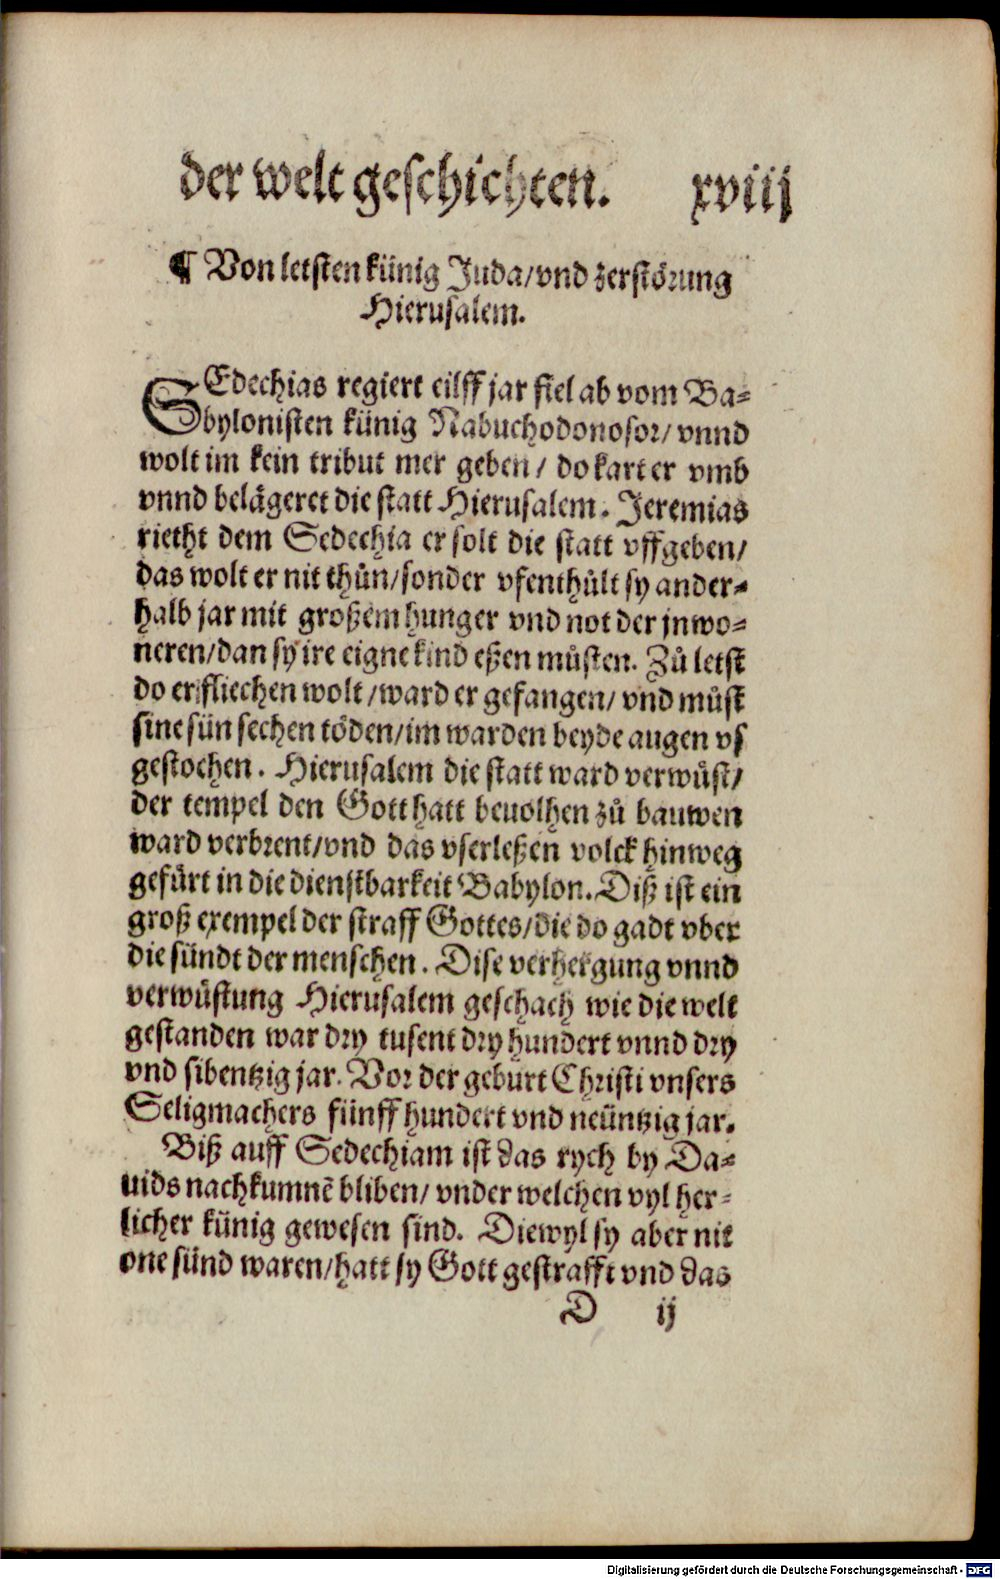 der welt geschichten. xviij
¶ Von letsten künig Juda/vnd zerstörung
Hierusalem.
SEdechias regiert eilff jar fiel ab vom Ba-
bylonisten künig Nabuchodonosor/ vnnd
wolt im kein tribut mer geben/ do kart er vmb
vnnd belägeret die statt Hierusalem. Jeremias
rietht dem Sedechia er solt die statt vffgeben/
das wolt er nit thůn/sonder vfenthůlt sy ander-
halb jar mit großem hunger vnd not der jnwo-
neren/dan sy ire eigne kind eßen můsten. Zů letst
do er fliechen wolt/ward er gefangen/ vnd můst
sine sün sechen töden/im warden beyde augen vs
gestochen. Hierusalem die statt ward verwůst/
der tempel den Gott hatt beuolhen zů bauwen
ward verbrent/vnd das vserleßen volck hinweg
gefürt in die dienstbarkeit Babylon. Diß ist ein
groß exempel der straff Gottes/die do gadt vber
die sündt der menschen. Dise verhergung vnnd
verwůstung Hierusalem geschach wie die welt
gestanden war dry tusent dry hundert vnnd dry
vnd sibentzig jar. Vor der geburt Christi vnsers
Seligmachers fünff hundert vnd neüntzig jar.
Biß auff Sedechiam ist das rych by Da-
uids nachkumnē bliben/ vnder welchen vyl her-
licher künig gewesen sind. Diewyl sy aber nit
one sünd waren/hatt sy Gott gestrafft vnd das
D ij
Digitalisierung gefördert durch die Deutsche Forschungsgemeinschaft - DFG